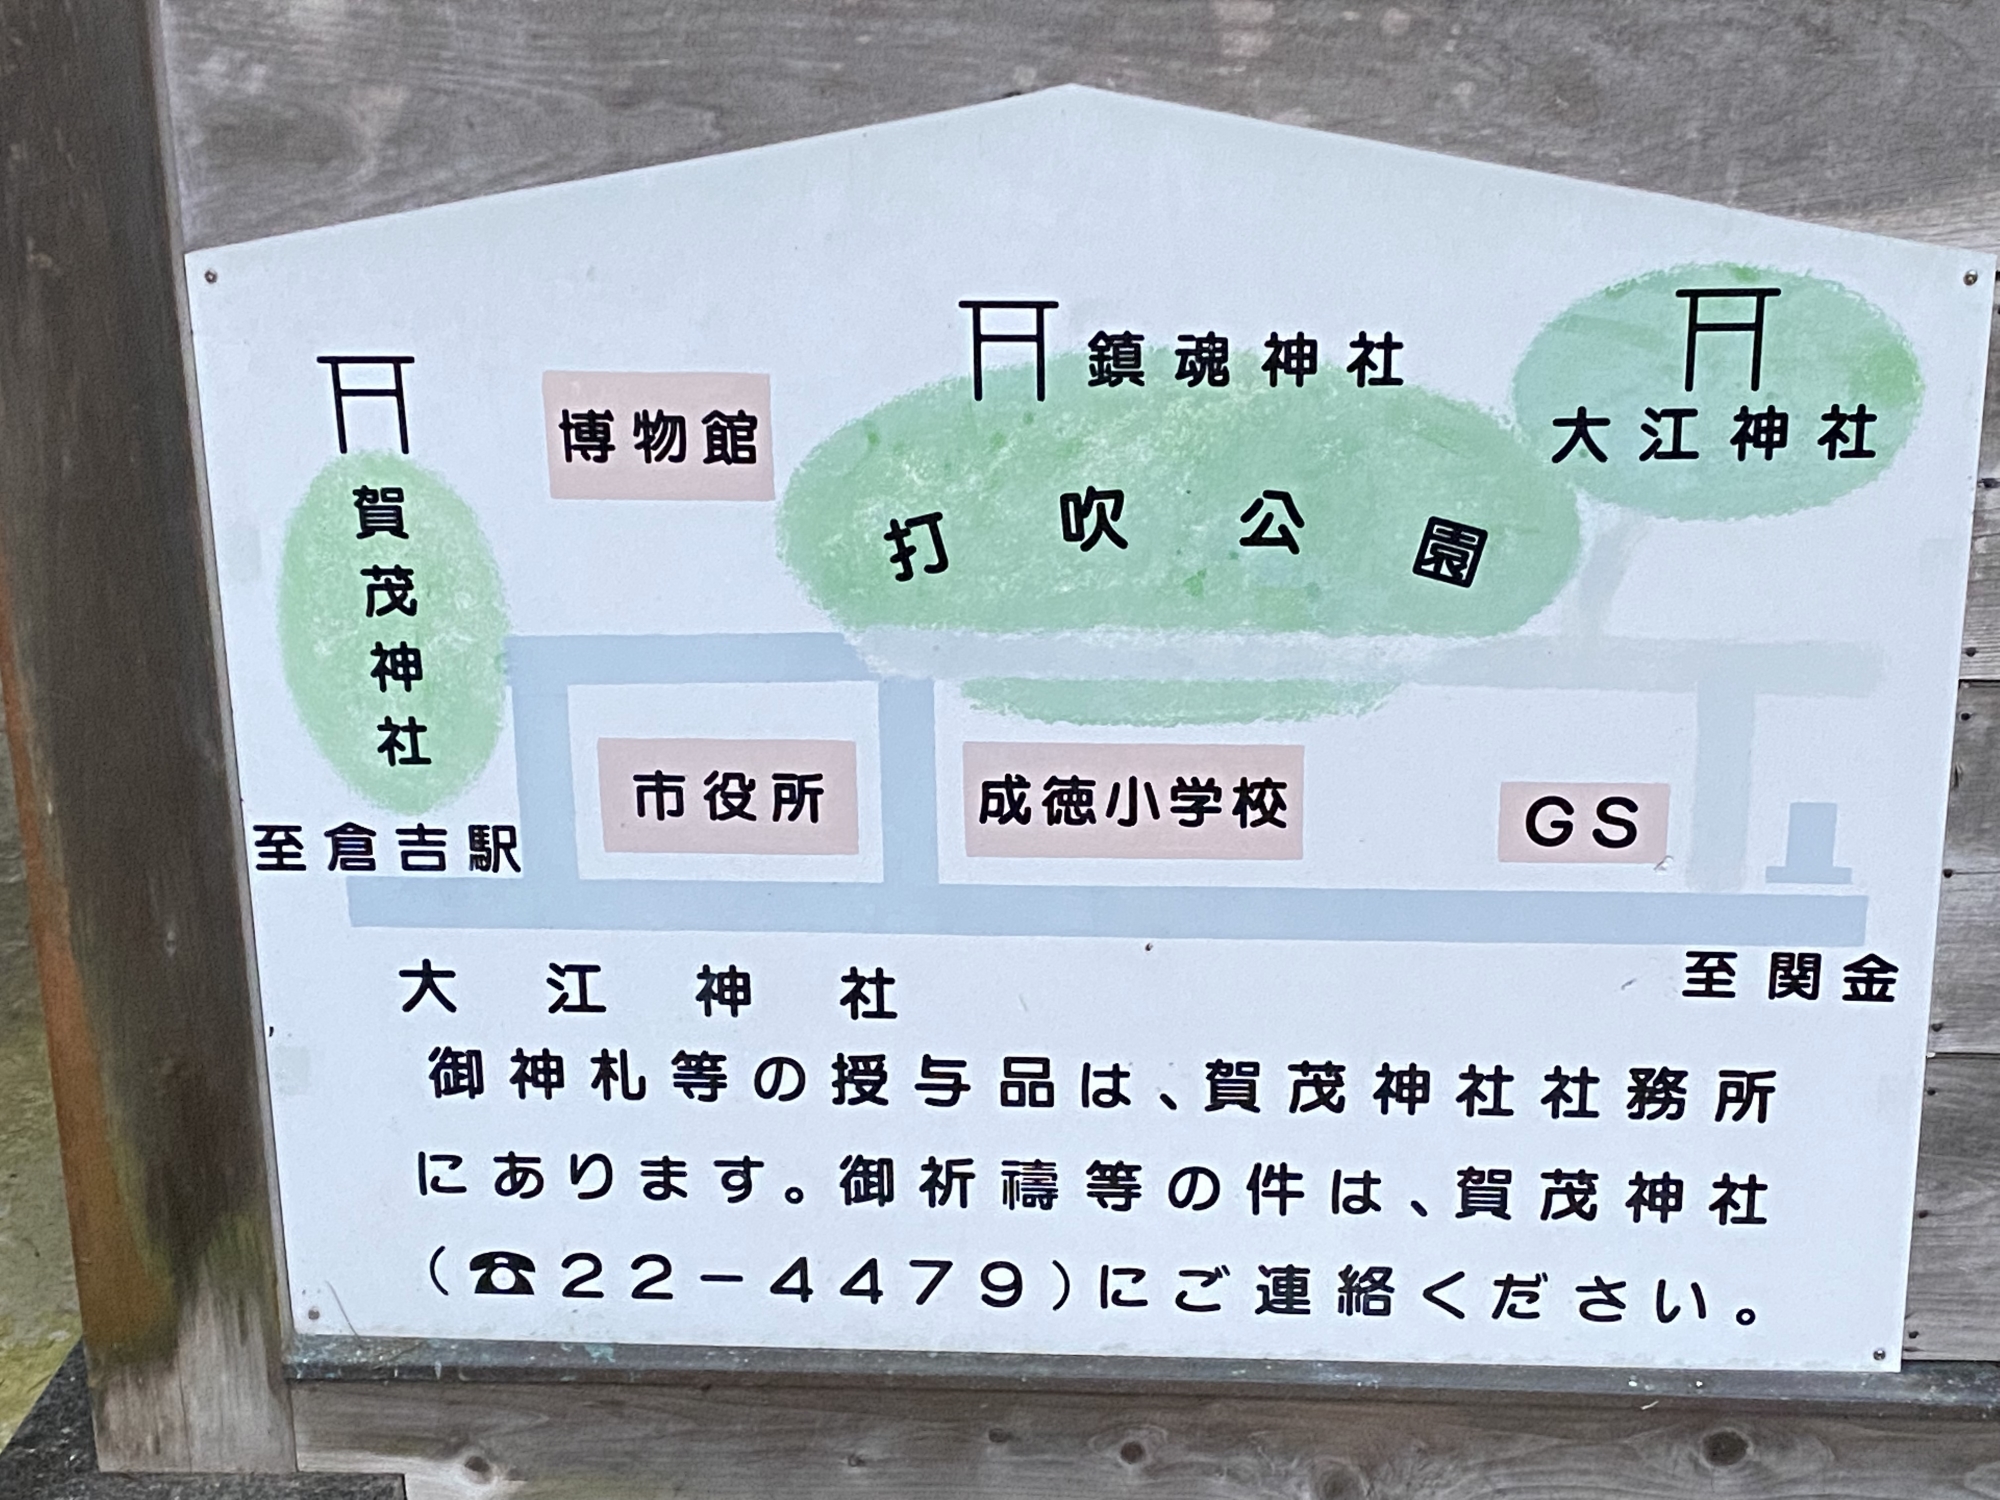 鎮魂神社
大江神社
博物館
賀茂神社
打吹公園
市役所
成徳小学校
GS
至倉吉駅
至関金
大江神社
御神札等の授与品は、賀茂神社社務所
にあります。御祈禱等の件は、賀茂神社
(☎22-4479)にご連絡ください。